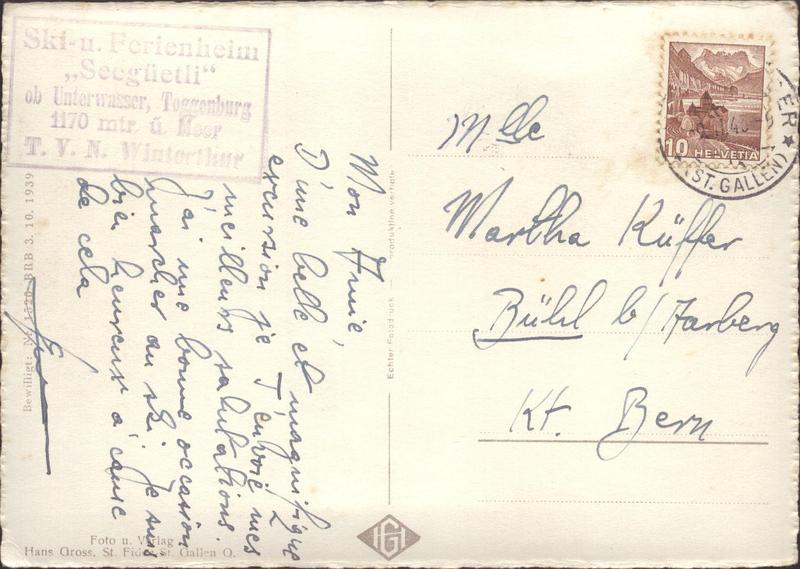 Ski- u. Ferienheim
„Seegüetli“
ob Unterwasser, Toggenburg
1170 mtr. ü. Meer
T. V. N. Winterthur
Mon Amie,
D'une belle et magnifique
excursion je T'envoie mes
meilleurs salutations.
J'ai une bonne occasion
marcher au ski. Je suis
bien heureux à cause
de cela
Mlle
Martha Küffer
Bühl b/Aarberg
Kt. Bern
10 HELVETIA
(ST. GALLEN)
Bewilligt: BRB 3. 10. 1939
Echter Fotodruck — Reproduktion verboten
Foto u. Verlag
Hans Gross, St. Fiden St. Gallen O.